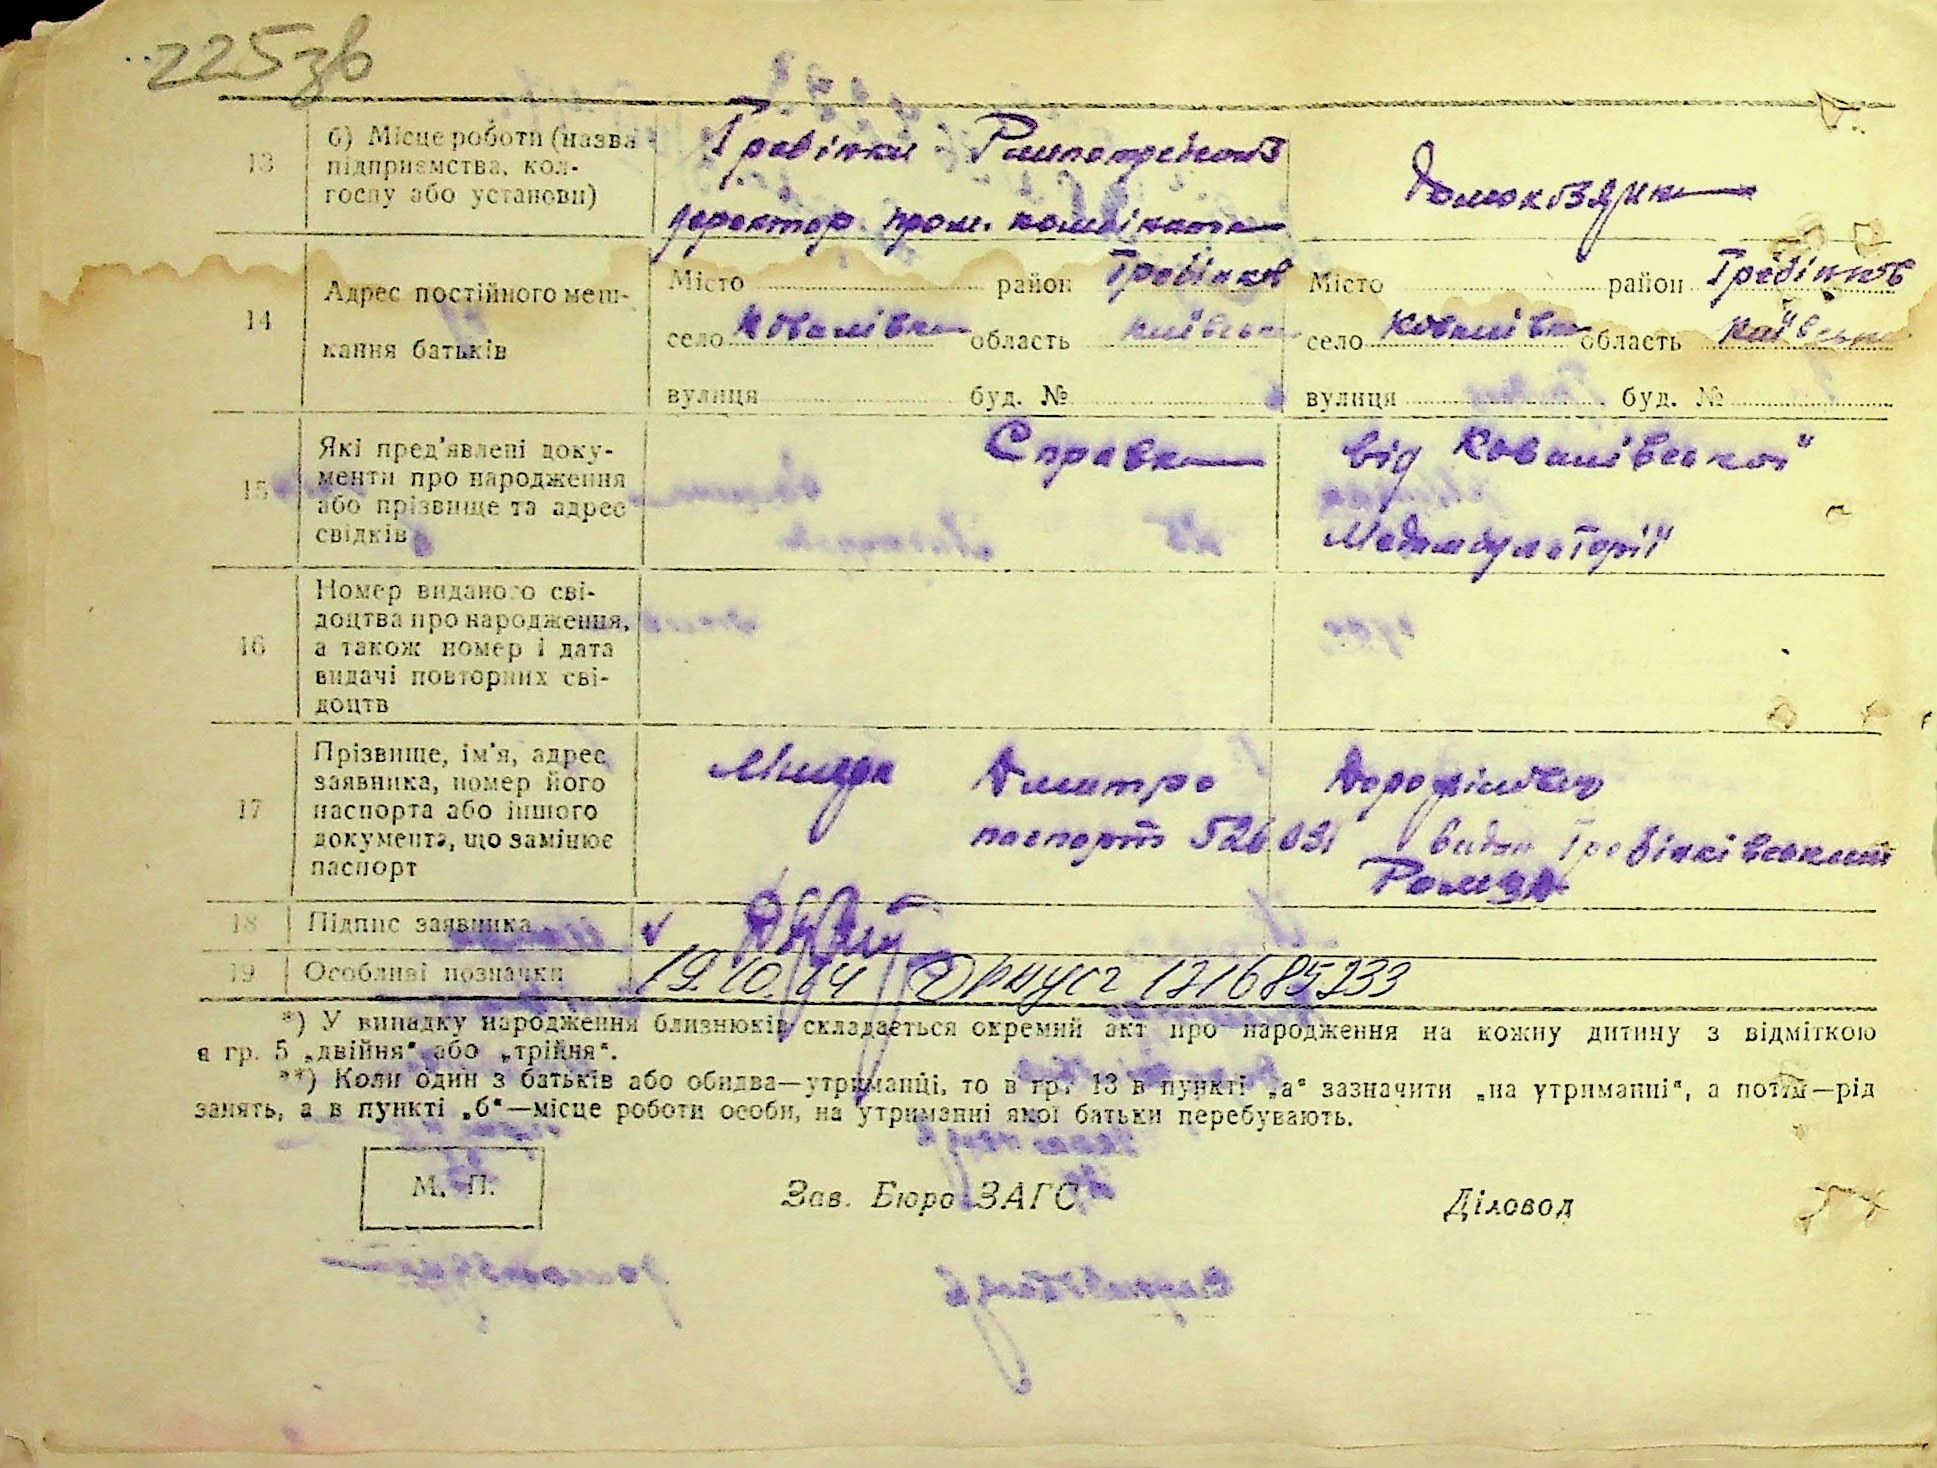 225зв
13
б) Місце роботи (назва
підприємства, кол-
госпу або установи)
Гребінки
директор пром. комбіната
Домохазяйка
14
Адрес постійного меш-
кання батьків
Місто район Гребінків
село Ковалівка область Київська
вулиця буд. №
Місто район Гребінків
село Ковалівка область Київська
вулиця буд. №
15
Які пред'явлені доку-
менти про народження
або прізвище та адрес
свідків
Справка від Ковалівської
Медамбулаторії
16
Номер виданого сві-
доцтва про народження,
а також номер і дата
видачі повторних сві-
доцтв
17
Прізвище, ім'я, адрес
заявника, номер його
паспорта або іншого
документа, що замінює
паспорт
Дмитро Дорофійович
паспорт 526031 видан Гребінківським
18
Підпис заявника
19
Особливі позначки
19.10.64
*) У випадку народження близнюків складається окремий акт про народження на кожну дитину з відміткою
в гр. 5 „двійня“ або „трійня“.
**) Коли один з батьків або обидва—утриманці, то в гр. 13 в пункті „а“ зазначити „на утриманні“, а потім—рід
занять, а в пункті „б“—місце роботи особи, на утриманні якої батьки перебувають.
М. П.
Зав. Бюро ЗАГС
Діловод